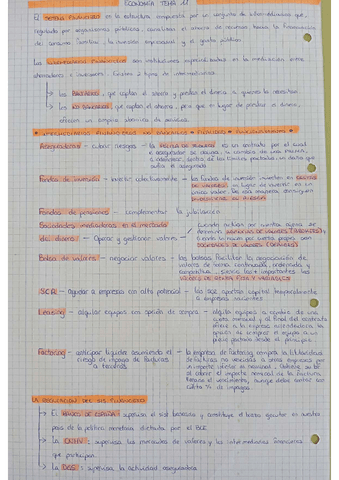 ECONOMÍA TEMA 11
El SISTEMA FINANCIERO es la estructura compuesta por un conjunto de intermediarios que,
regulado por organismos públicos, canalizan el ahorro de recursos hacia la financiación
del consumo familiar, la inversión empresarial y el gasto público.
Los INTERMEDIARIOS FINANCIEROS son instituciones especializadas en la mediación entre
ahorradores e inversores. Existen 2 tipos de intermediarios:
↳ los BANCARIOS, que captan el ahorro y prestan el dinero a quienes lo necesitan
↳ los NO BANCARIOS, que captan el ahorro, pero que en lugar de prestar el dinero,
ofrecen un amplio abanico de servicios.
INTERMEDIARIOS FINANCIEROS NO BANCARIOS
Aseguradoras - cubrir riesgos - la PÓLIZA DE SEGUROS es un contrato por el cual
el asegurador se obliga, a cambio de una prima,
a indemnizar, dentro de los límites pactados, un daño que
sufra el asegurado
Fondos de inversión - invertir colectivamente - los fondos de inversión invierten en
DE VALORES, en lugar de invertir en un
único valor. De esa manera, consiguen
Fondos de pensiones - complementar la jubilación
Sociedades mediadoras en el mercado
de dinero - Operar y gestionar valores
cuando actúan por cuenta ajena se
denomina AGENCIAS DE VALORES
y cuando lo hacen por cuenta propia son
SOCIEDADES DE VALORES
Bolsa de valores - negociar valores - las bolsas facilitan la negociación
de valores de forma continuada, ordenada y
competitiva, siendo las + importantes las
VALORES DE RENTA FIJA Y VARIABLE
SCR - Ayudar a empresas con alto potencial - las SCR aportan capital temporalmente
a empresas nacientes
Leasing - alquilar equipos con opción de compra - alquila equipos a cambio de una
cuota mensual y al final del contrato
ofrece a la empresa arrendataria la
opción de comprar el equipo a un
precio pactado desde el principio
Factoring - anticipar liquidez asumiendo el
riesgo de impago de facturas
a terceros
- la empresa de factoring compra la totalidad
de facturas no vencidas a otras empresas por
un importe inferior al nominal.
LA REGULACIÓN DEL SIS. FINANCIERO
↳ El BANCO DE ESPAÑA supervisa el sist. bancario y constituye el brazo ejecutor en nuestro
país de la política monetaria dictada por el BCE
↳ La CNMV: supervisa los mercados de valores y los intermediarios financieros
que participan
↳ La DGS: supervisa la actividad aseguradora.